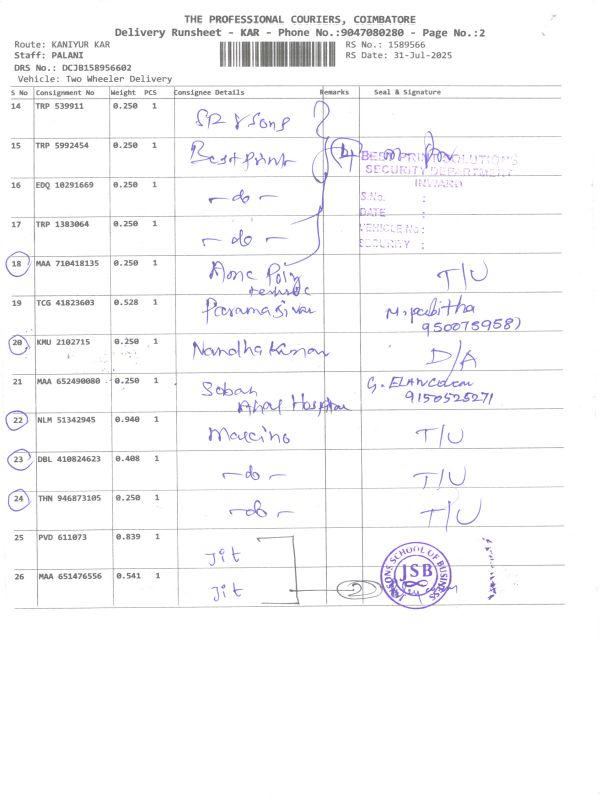 THE PROFESSIONAL COURIERS, COIMBATORE
Delivery Runsheet - KAR - Phone No.:9047080280 - Page No.:2
Route: KANIYUR KAR
RS No.: 1589566
Staff: PALANI
RS Date: 31-Jul-2025
DRS No.: DCJB158956602
Vehicle: Two Wheeler Delivery
S No Consignment No Weight PCS Consignee Details Remarks Seal & Signature
14 TRP 539911 0.250 1 SP & Sons
15 TRP 5992454 0.250 1 Best print 4
BEST PRINT SOLUTIONS
SECURITY DEPARTMENT
INWARD
16 EDQ 10291669 0.250 1 - do -
S.No. :
DATE :
17 TRP 1383064 0.250 1 - do -
VEHICLE No :
SECURITY :
18 MAA 710418135 0.250 1 T/U
19 TCG 41823603 0.528 1 Paramasivan M. pabitha
20 KMU 2102715 0.250 1 Nandha Kumar D/A
21 MAA 652490080 0.250 1 Hospital G.
9150525271
22 NLM 51342945 0.940 1 T/U
23 DBL 410824623 0.408 1 - do - T/U
24 THN 946873105 0.250 1 - do - T/U
25 PVD 611073 0.839 1 Jit
26 MAA 651476556 0.541 1 Jit 2
JANSONS SCHOOL OF BUSINESS
JSB